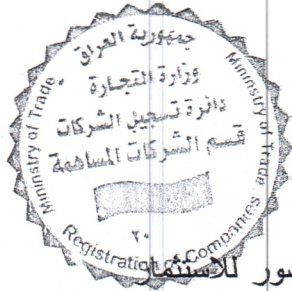 جمهورية العراق
وزارة التجارة
دائرة تسجيل الشركات
قسم الشركات المساهمة
Mininstry of Trade
Mininstry of Trade
Registration of Companies
٢٠
للاستثمار